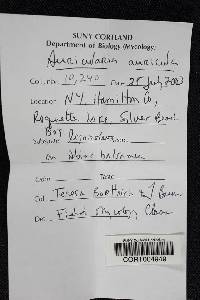 SUNY CORTLAND
Department of Biology (Mycology)
Auricularia auricula
Coll. no. 10,240 Date 25 July 2003
Location NY. Hamilton Co,
Raquette Lake, Silver Beach
Bog
Substrate
on Abies balsamea
Date
Coll. Teresa
Det. Fields Mycology Class
COR1004949